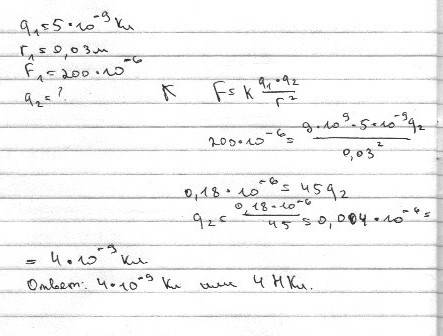 q₁=5·10⁻⁹ Кл
r₁=0,03м
F₁=200·10⁻⁶
q₂=?
K F=k q₁·q₂/r²
200·10⁻⁶= 9·10⁹·5·10⁻⁹q₂/0,03²
0,18·10⁻⁶=45q₂
q₂= 0,18·10⁻⁶/45=0,004·10⁻⁶=
=4·10⁻⁹ Кл
Ответ: 4·10⁻⁹ Кл или 4 НКл.